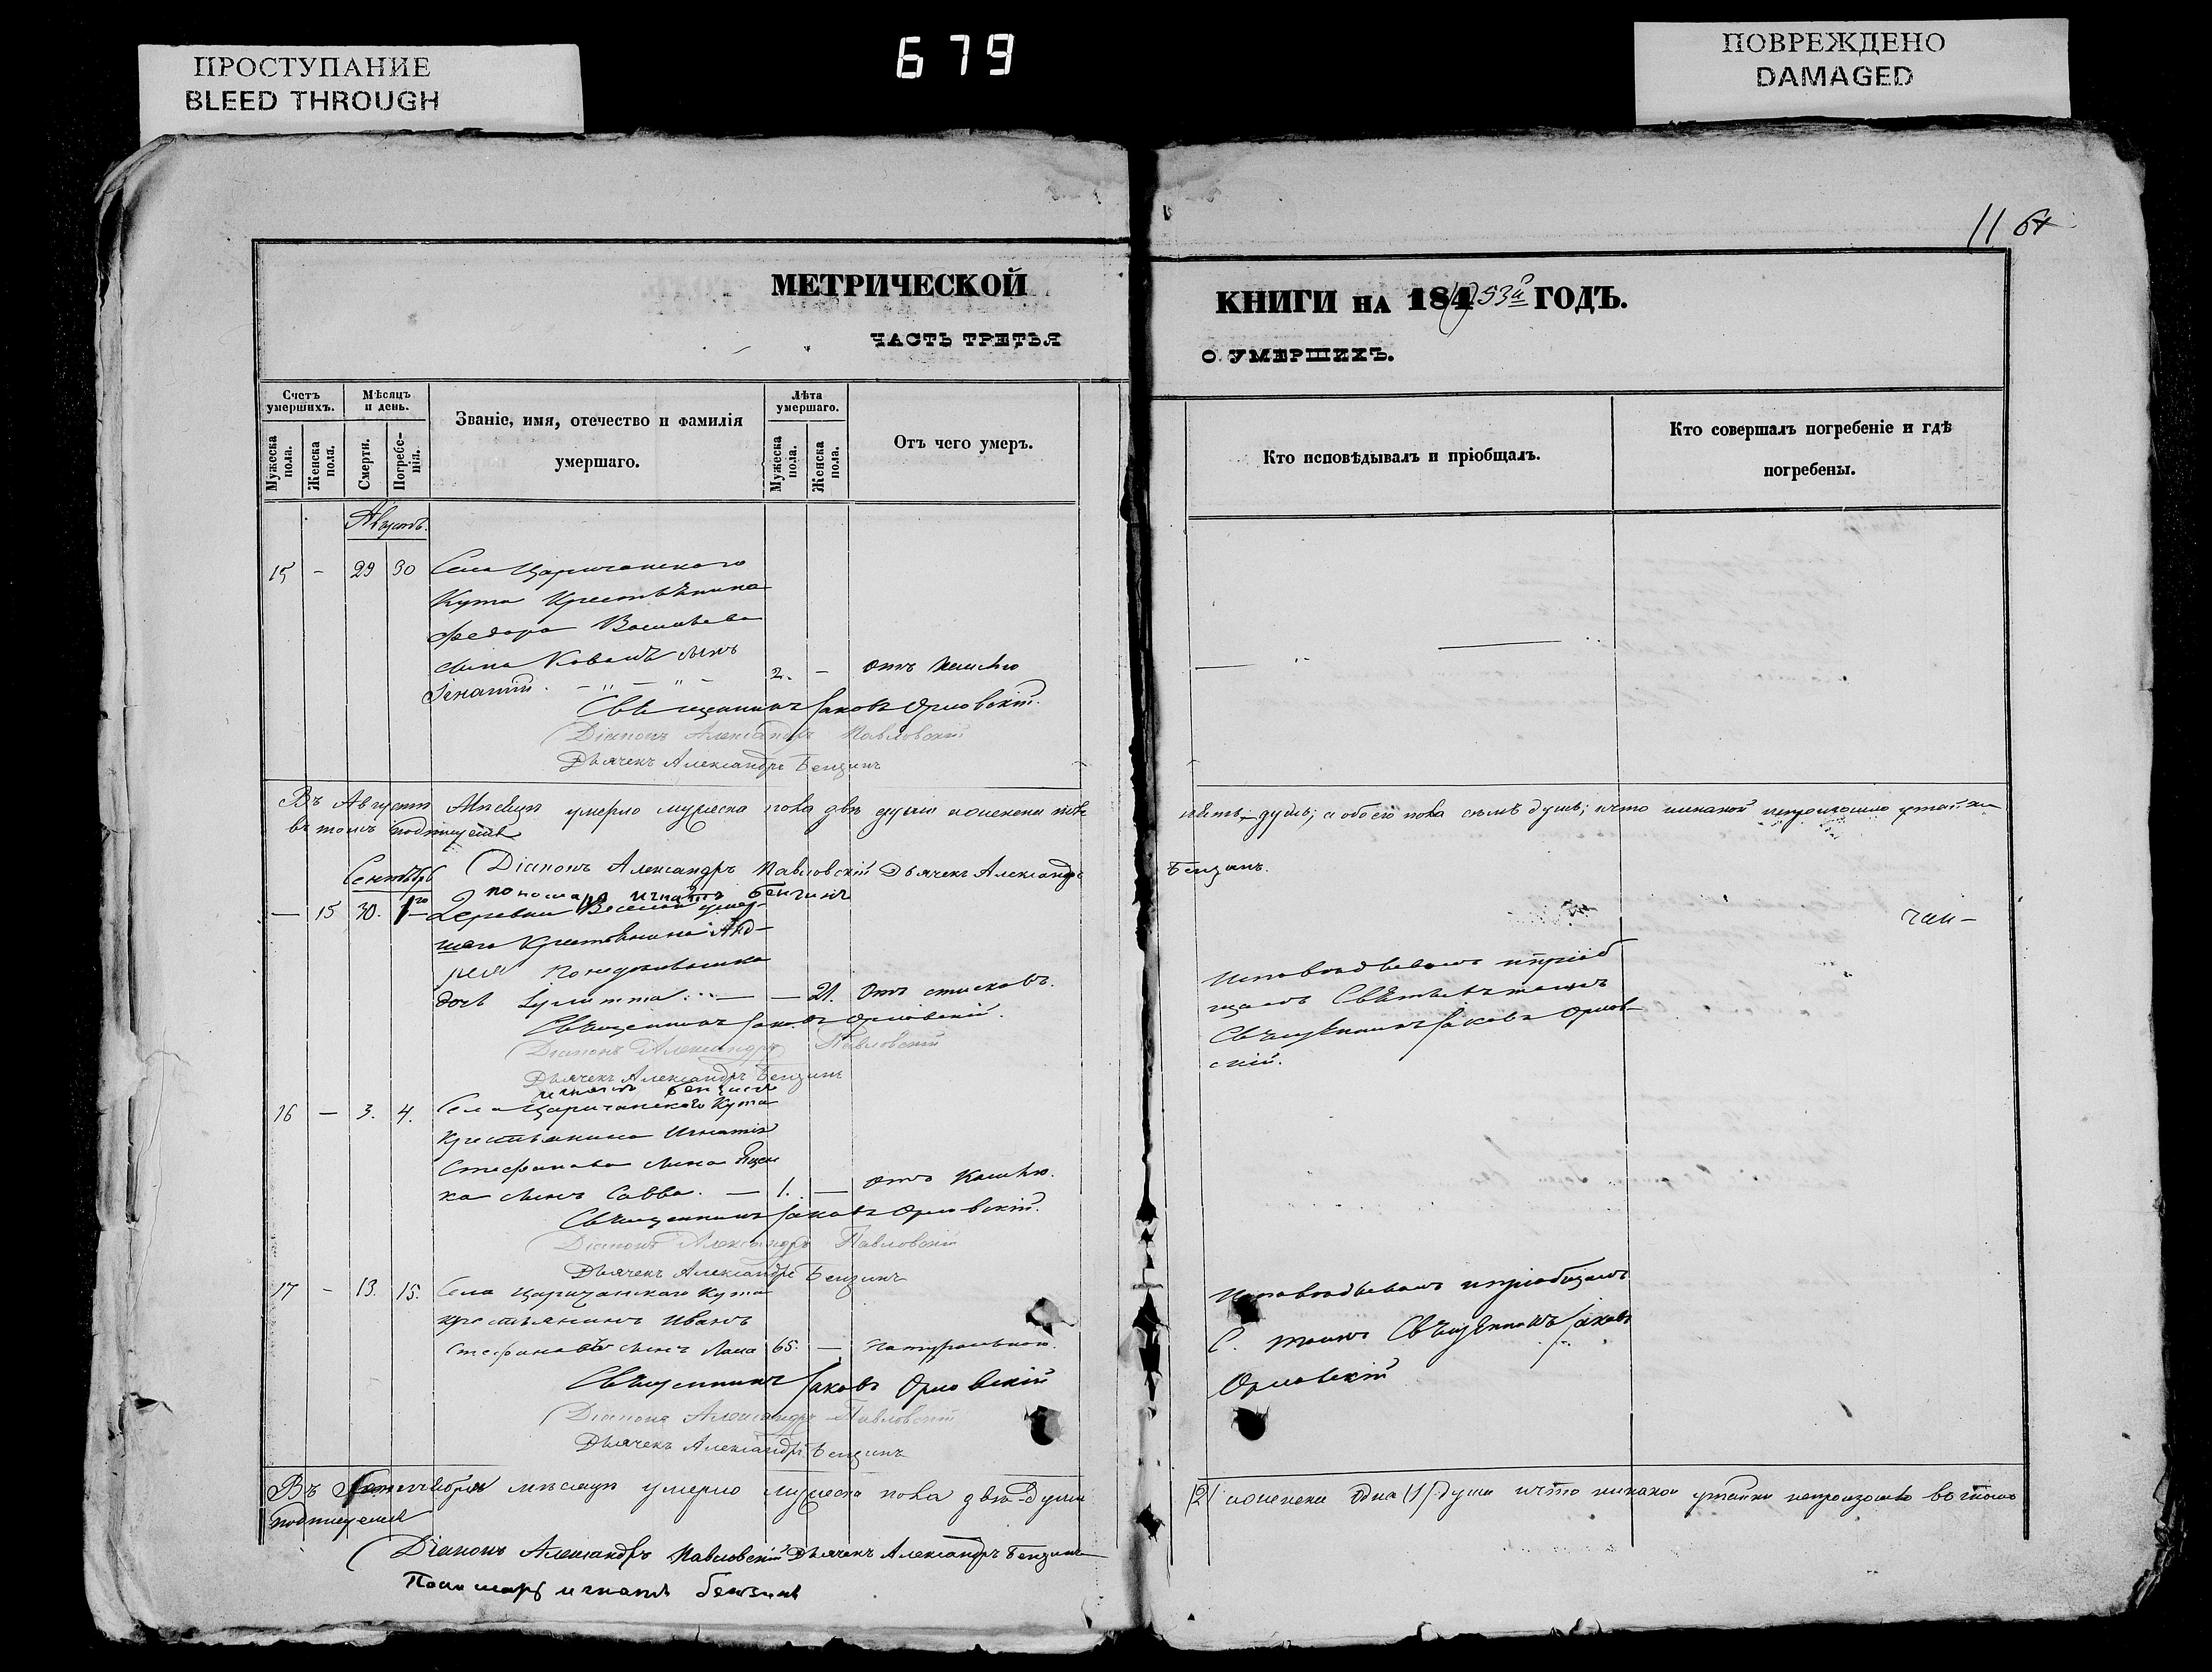 ПРОСТУПАНИЕ
BLEED THROUGH
679
ПОВРЕЖДЕНО
DAMAGED
11
МЕТРИЧЕСКОЙ
КНИГИ НА 184 53й ГОДЪ.
ЧАСТЬ ТРЕТЬЯ
О УМЕРШИХЪ.
Счетъ умершихъ.
Мужеска пола.
Женска пола.
Мѣсяцъ и день.
Смерти.
Погребенія.
Званіе, имя, отечество и фамилія
умершаго.
Лѣта умершаго.
Мужеска пола.
Женска пола.
Отъ чего умеръ.
Кто исповѣдывалъ и пріобщалъ.
Кто совершалъ погребеніе и гдѣ
погребены.
Августъ.
15 - 29 30 Села Царичанского
Кута Крестьянина
Федора Васильева
сына Коваля сынъ
Игнатій. 2. - отъ кашлю
Священникъ Іаковъ Орловскій.
Діаконъ Александръ Павловскій
Дьячекъ Александръ Бензинъ
Въ Августѣ Мѣсяцѣ умерло мужеска пола двѣ души а женска
пять душъ; а обоего пола семь душъ; и что никакой непроизошло утайки
въ томъ подписуемся
Діаконъ Александръ Павловскій Дьячекъ Александръ
Бензинъ.
Сентябрь
пономарь игнатъ бензинъ
— 15 30. 1 Деревни Веселой умер-
шаго Крестьянина Анд-
рея
дочь Іулитта. — — 21. Отъ
Священникъ Іаковъ Орловскій.
Діаконъ Александръ Павловскій
Дьячекъ Александръ Бензинъ
игнатъ бензинъ
Исповѣдывалъ и пріоб
щалъ
Священникъ Іаковъ Орлов-
скій.
16 — 3. 4. Села Царичанского Кута
Крестьянина Игнатія
Стефанова сына Яцен
ка сынъ Савва. — 1. — отъ Кашлю.
Священникъ Іаковъ Орловскій.
Діаконъ Александръ Павловскій
Дьячекъ Александръ Бензинъ
17 - 13. 15. Села Царичанского Кута
крестьянинъ Иванъ
Стефановъ сынъ 65. — Натуральною.
Священникъ Іаковъ Орловскій
Діаконъ Александръ Павловскій
Дьячекъ Александръ Бензинъ
Исповѣдывалъ и пріобщалъ
С. Священникъ Іаковъ
Орловскій
Въ Сентябрѣ мѣсяцѣ умерло мужеска пола двѣ души
(2) а женска одна (1) душа и что никакой утайки непроизошло въ томъ
подписуемся
Діаконъ Александръ Павловскій Дьячекъ Александръ Бензинъ
Пономарь игнатъ бензинъ